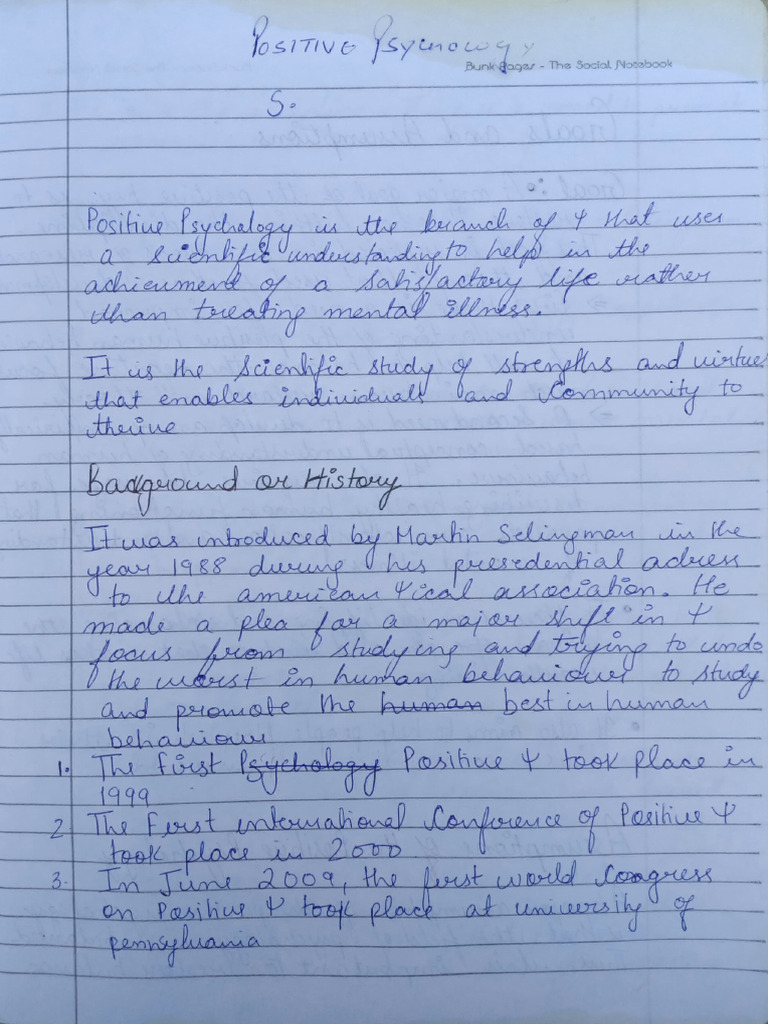 POSITIVE PSYCHOLOGY
Bunk Pages - The Social Notebook
S.
Positive Psychology is the branch of Ψ that uses
a scientific understanding to help in the
achievment of a satisfactory life rather
than treating mental illness.
It is the scientific study of strengths and virtues
that enables individuals and community to
thrive
Background or History
It was introduced by Martin Selingman in the
year 1988 during his presedential adress
to the american Ψical association. He
made a plea for a major shift in Ψ
focus from studying and trying to undo
the worst in human behaviour to study
and promote the human best in human
behaviour
1. The first Psychology Positive Ψ took place in
1999
2. The first international Conference of Positive Ψ
took place in 2000
3. In June 2009, the first world Congress
on Positive Ψ took place at university of
pennsylvania